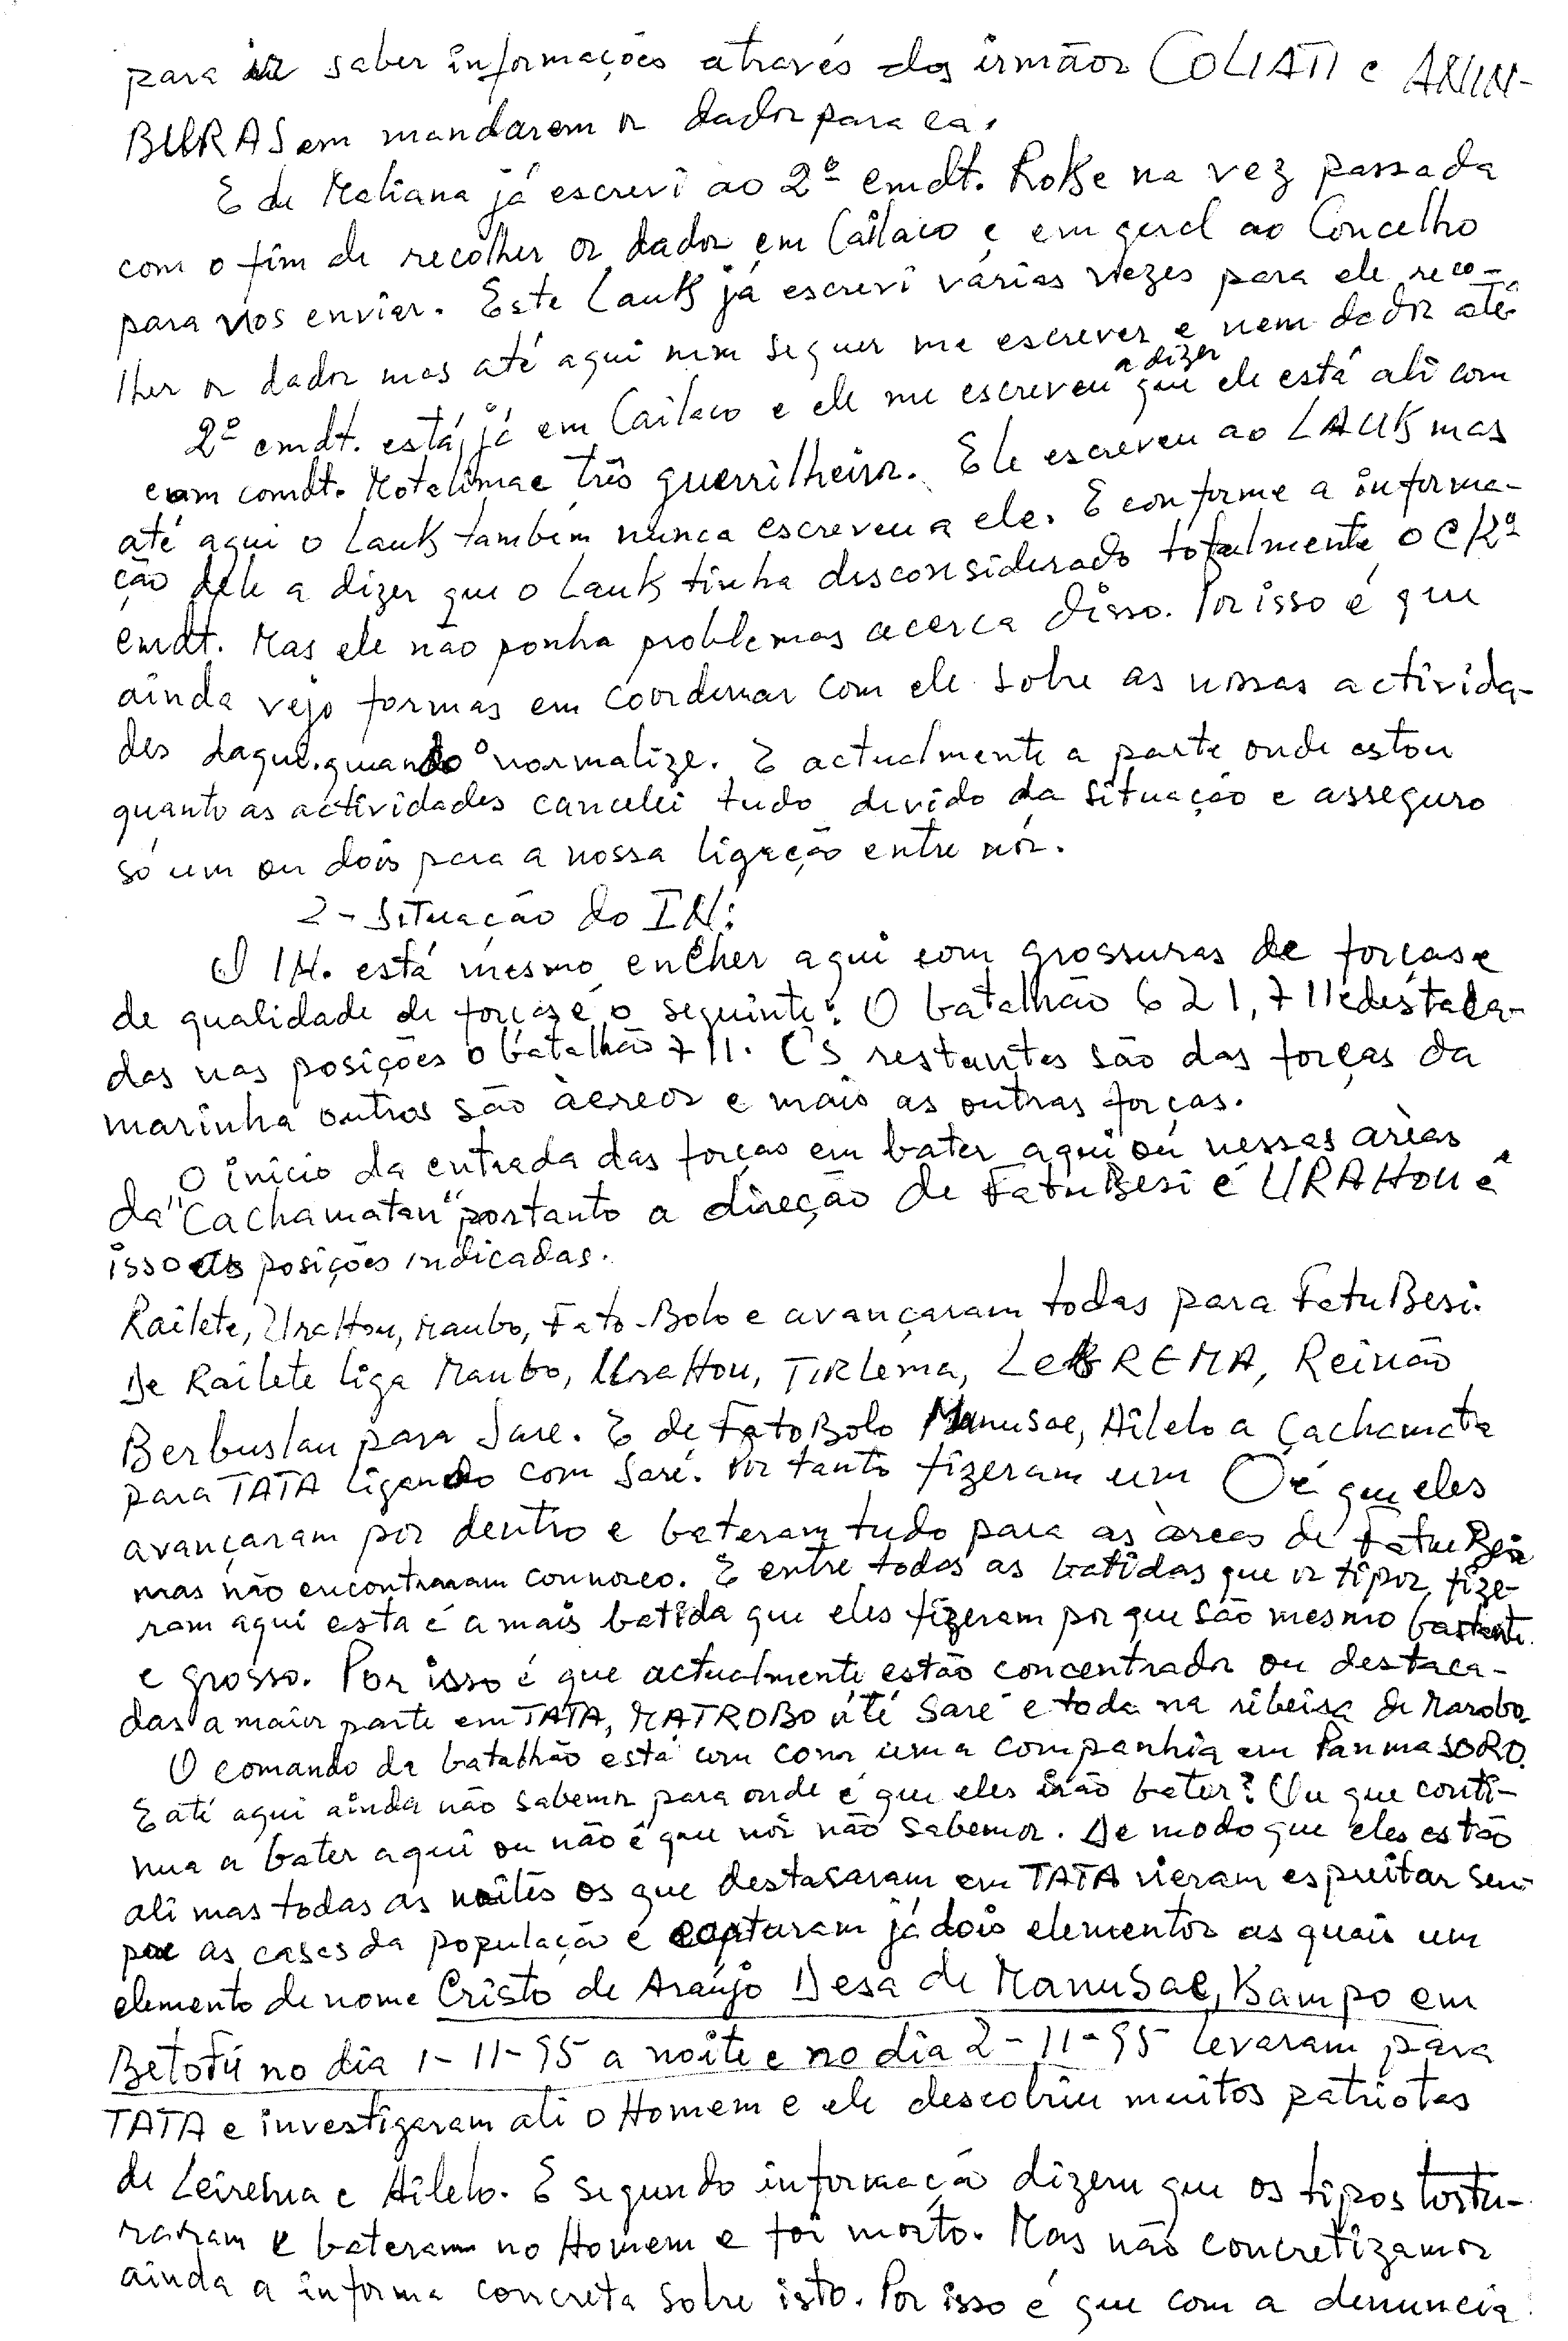 para ir saber informações através dos irmãos COLIATI e ANIN-
BURAS em mandarem os dados para ca.
E de Maliana já escrevi ao 2º cmdt. RoKe na vez passada
com o fim de recolher os dados em Cailaco e em geral ao Concelho
para vos enviar. Este Lauk já escrevi várias vezes para ele reco-
lher os dados mas até aqui nem sequer me escrever e nem dados até
2º cmdt. está já em Cailaco e ele me escreveu a dizer que ele está ali com
com comdt. Motalima e três guerrilheiros. Ele escreveu ao LAUK mas
até aqui o Lauk também nunca escreveu a ele. E conforme a informa-
ção dele a dizer que o Lauk tinha desconsiderado totalmente o
cmdt. Mas ele não ponha problemas acerca disso. Por isso é que
ainda vejo formas em coordenar com ele sobre as nossas activida-
des daqui. quando normalize. E actualmente a parte onde estou
quanto as actividades cancelei tudo divido da situação e asseguro
só um ou dois para a nossa ligação entre nós.
2 - Situação do IN:
O IN. está mesmo encher aqui com grossuras de forças e
de qualidade de forças é o seguinte: O batalhão 621, 711 e destaca-
das nas posições o batalhão 711. Os restantes são das forças da
marinha outros são àereos e mais as outras forças.
O início da entrada das forças em bater aqui ou nessas àreas
da "Cachamatan" portanto a direção de FatuBesi e URAHou é
isso as posições indicadas.
Railete, UraHou, Maubo, Fato-Bolo e avançaram todas para FatuBesi.
De Railete liga Maubo, UraHou, TIRLema, LeBREMA, Reinão
Berbuslau para Sare. E de FatoBolo Manusae, Ailelo a Cachamata
para TATA ligando com Saré. Por tanto fizeram um O é que eles
avançaram por dentro e bateram tudo para as àreas de FatuBesi
mas não encontraram connosco. E entre todas as batidas que os tipos fize-
ram aqui esta é a mais batida que eles fizeram por que são mesmo bastante
e grosso. Por isso é que actualmente estão concentrados ou destaca-
das a maior parte em TATA, MATROBO até Saré e toda na ribeira de Marobo
O comando da batalhão está com uma companhia em PanmaSORO.
E até aqui ainda não sabemos para onde é que eles irão bater? Ou que conti-
nua a bater aqui ou não é que nós não sabemos. De modo que eles estão
ali mas todas as noites os que destacaram em TATA vieram espreitar sem-
pre as casas da população e capturam já dois elementos as quais um
elemento de nome Cristo de Araújo Desa de ManuSae, Kampo em
BetoFú no dia 1-11-95 a noite e no dia 2-11-95 levaram para
TATA e investigaram ali o Homem e ele descobriu muitos patriotas
de Leirema e Ailelo. E segundo informaçã dizem que os tipos tortu-
raram e bateram no Homem e foi morto. Mas não concretizamos
ainda a informa concreta sobre isto. Por isso é que com a denuncia